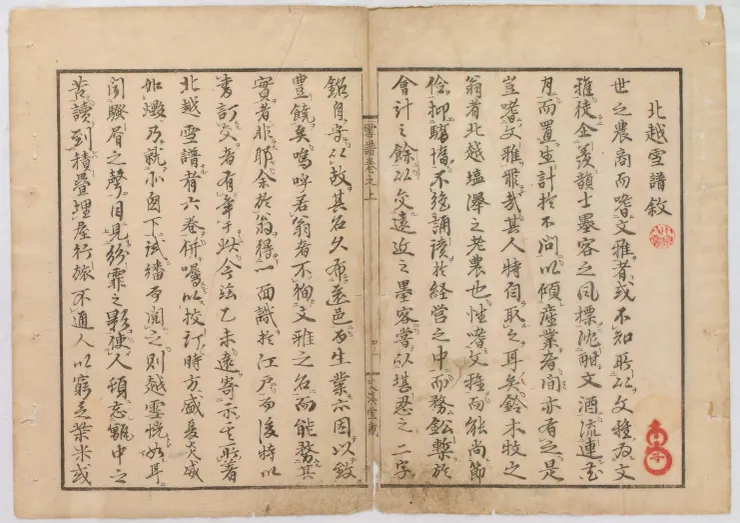 北越雪譜敘
世之農商而嗜文雅者或不知所以文雅為文
雅徒企羨韻士墨客之風標沈酣文酒流連花
月而置生計於不問以傾産業者間亦有之是
豈嗜文雅罪哉其人特自取之耳矣鈴木牧之
翁者北越塩澤之老農也性嗜文雅而能尚節
儉抑驕惰不絶誦讀於経営之中而務鉛槧於
會計之餘以交遠近之墨客嘗以堪忍之二字
雪譜巻之上
文溪堂藏
銘自守以故其名久布遠邑而生業亦因以殷
豊饒矣嗚呼若翁者不徇文雅之名而能務其
實者非耶余於翁得一面識於江戸而後時以
書訂交者有年于此今茲乙未遠寄示其所著
北越雪譜者六卷併囑以校訂時方盛夏炎威
如燬乃就小閣下試繙而閲之則越雪恍如耳
聞驟屑之聲目見紛霏之影使人頓忘甑中之
苦讀到積疊埋屋行旅不通人以窮乏柴米或